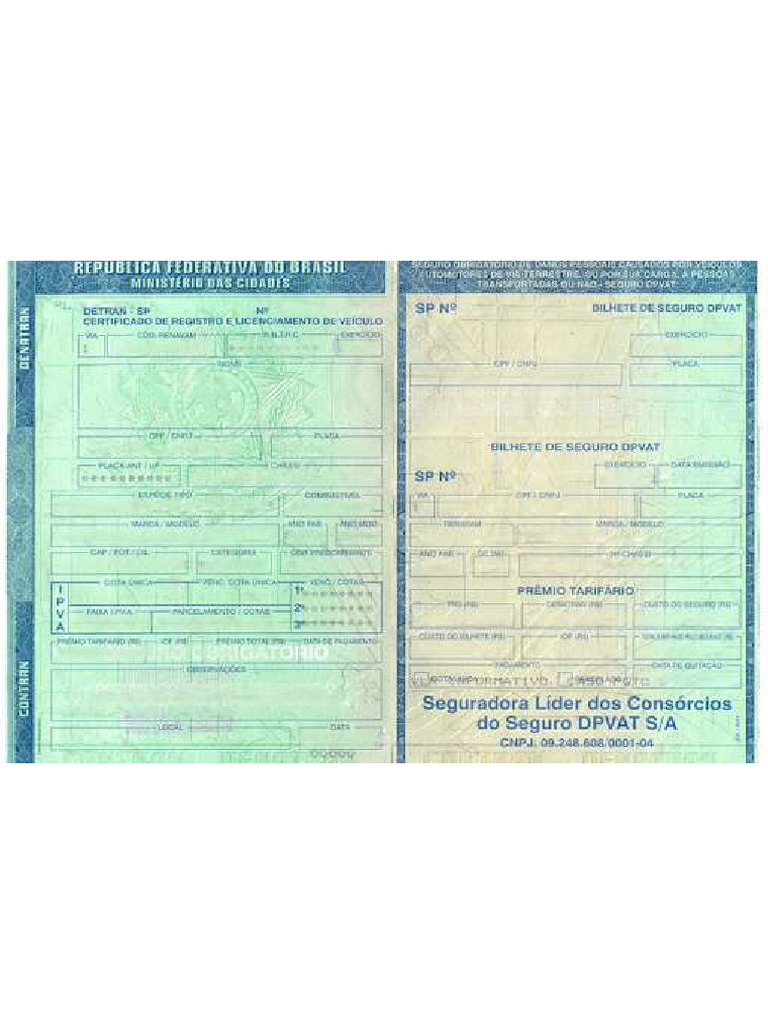 REPÚBLICA FEDERATIVA DO BRASIL
MINISTÉRIO DAS CIDADES
DENATRAN
CONTRAN
DETRAN - SP Nº
CERTIFICADO DE REGISTRO E LICENCIAMENTO DE VEÍCULO
VIA CÓD. RENAVAM R.N.T.R.C. EXERCÍCIO
NOME
CPF / CNPJ PLACA
PLACA ANT / UF CHASSI
**********
ESPÉCIE TIPO COMBUSTÍVEL
MARCA / MODELO ANO FAB ANO MOD
CAP / POT / CIL CATEGORIA COR PREDOMINANTE
IPVA
COTA ÚNICA VENC. COTA ÚNICA VENC. / COTAS
1ª
FAIXA I.P.V.A. PARCELAMENTO / COTAS 2ª
3ª
PRÊMIO TARIFÁRIO (R$) IOF (R$) PRÊMIO TOTAL (R$) DATA DE PAGAMENTO
OBRIGATÓRIO
OBSERVAÇÕES
LOCAL DATA
SEGURO OBRIGATÓRIO DE DANOS PESSOAIS CAUSADOS POR VEÍCULOS
AUTOMOTORES DE VIA TERRESTRE, OU POR SUA CARGA, A PESSOAS
TRANSPORTADAS OU NÃO - SEGURO DPVAT
SP Nº BILHETE DE SEGURO DPVAT
EXERCÍCIO
CPF / CNPJ PLACA
BILHETE DE SEGURO DPVAT
SP Nº EXERCÍCIO DATA EMISSÃO
VIA CPF / CNPJ PLACA
RENAVAM MARCA / MODELO
ANO FAB Nº CHASSI
PRÊMIO TARIFÁRIO
CUSTO DO SEGURO (R$)
CUSTO DO BILHETE (R$) IOF (R$)
PAGAMENTO DATA DE QUITAÇÃO
COTA ÚNICA PARCELADO
INFORMATIVO. CASO PGTO
Seguradora Líder dos Consórcios
do Seguro DPVAT S/A
CNPJ: 09.248.608/0001-04